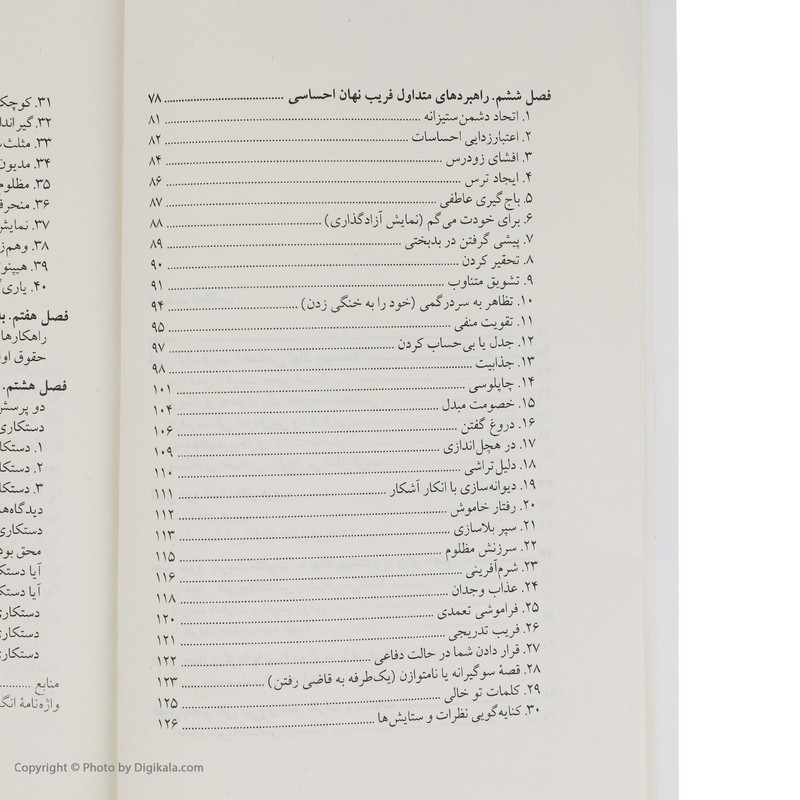 فصل ششم. راهبردهای متداول فریب نهان احساسی ........ ۷۸
۱. اتحاد دشمن‌ستیزانه ........ ۸۱
۲. اعتبارزدایی احساسات ........ ۸۲
۳. افشای زودرس ........ ۸۴
۴. ایجاد ترس ........ ۸۶
۵. باج‌گیری عاطفی ........ ۸۷
۶. برای خودت می‌گم (نمایش آزادگذاری) ........ ۸۸
۷. پیشی گرفتن در بدبختی ........ ۸۹
۸. تحقیر کردن ........ ۹۰
۹. تشویق متناوب ........ ۹۱
۱۰. تظاهر به سردرگمی (خود را به خنگی زدن) ........ ۹۴
۱۱. تقویت منفی ........ ۹۵
۱۲. جدل یا بی‌حساب کردن ........ ۹۷
۱۳. جذابیت ........ ۹۸
۱۴. چاپلوسی ........ ۱۰۱
۱۵. خصومت مبدل ........ ۱۰۴
۱۶. دروغ گفتن ........ ۱۰۶
۱۷. در هچل‌اندازی ........ ۱۰۹
۱۸. دلیل‌تراشی ........ ۱۱۰
۱۹. دیوانه‌سازی با انکار آشکار ........ ۱۱۱
۲۰. رفتار خاموش ........ ۱۱۲
۲۱. سپر بلاسازی ........ ۱۱۳
۲۲. سرزنش مظلوم ........ ۱۱۵
۲۳. شرم‌آفرینی ........ ۱۱۶
۲۴. عذاب وجدان ........ ۱۱۸
۲۵. فراموشی تعمدی ........ ۱۲۰
۲۶. فریب تدریجی ........ ۱۲۱
۲۷. قرار دادن شما در حالت دفاعی ........ ۱۲۲
۲۸. قصهٔ سوگیرانه یا نامتوازن (یک‌طرفه به قاضی رفتن) ........ ۱۲۳
۲۹. کلمات تو خالی ........ ۱۲۵
۳۰. کنایه‌گویی نظرات و ستایش‌ها ........ ۱۲۶
۳۱.
۳۲.
۳۳.
۳۴. مدیون
۳۵.
۳۶.
۳۷. نمایش
۳۸.
۳۹.
۴۰.
فصل هفتم.
راهکارها
حقوق
فصل هشتم.
دو
دستکاری
۱.
۲.
۳.
دستکاری
محق
آیا
آیا
منابع ........
واژه‌نامهٔ
Copyright © Photo by Digikala.com